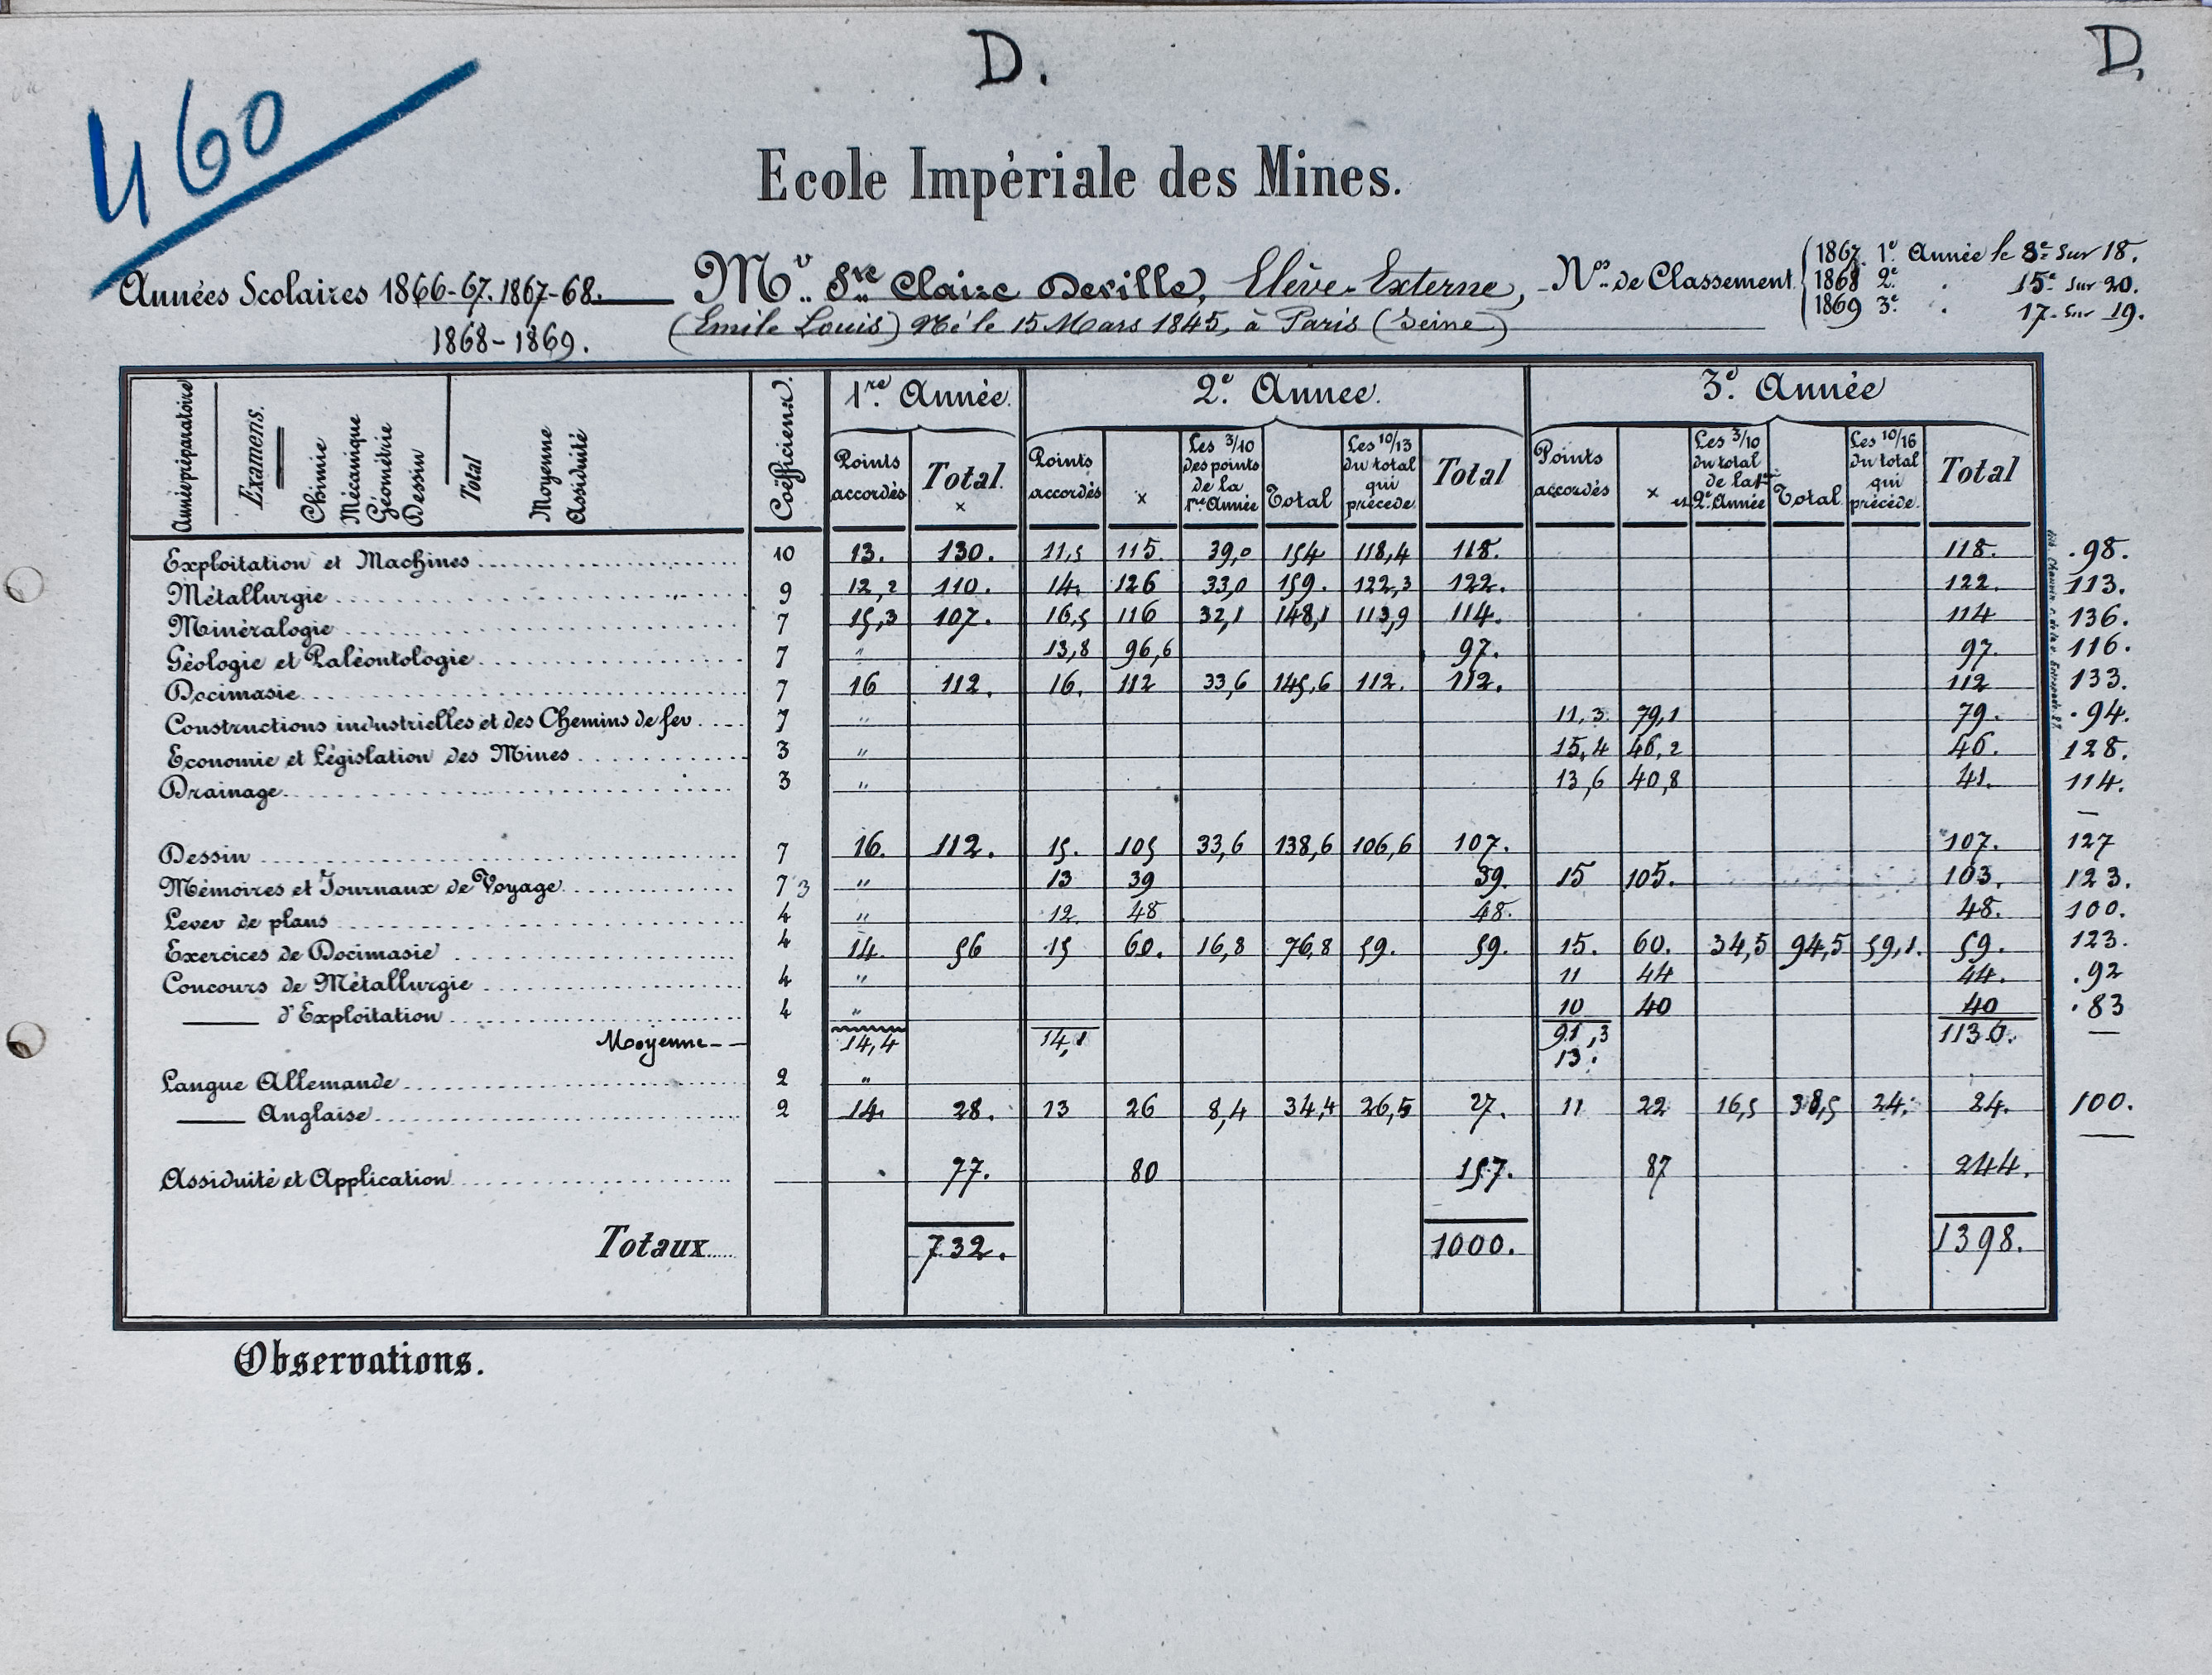 D.
D.
460
Ecole Impériale des Mines.
Années Scolaires 1866-67. 1867-68.
1868-1869.
Mr. Ste Claire Deville, Elève-Externe,
(Emile Louis) Né le 15 Mars 1845, à Paris (Seine)
Nos. de Classement
1867. 1e Année le 8e sur 18.
1868 2e. . 15e sur 20.
1869 3e. . 17. sur 19.
Année préparatoire Examens. Chimie Mécanique Géométrie Dessin Total Moyenne Assiduité
Coëfficienx. 1re. Année. 2e. Annee. 3e. Année
Points accordés Total. x
Points accordés x Les 3/10 des points de la 1re Année Total Les 10/13 du total qui précède Total
Points accordés x Les 3/10 du total de la 1re et 2e. Année Total Les 10/16 du total qui précède. Total
Exploitation et Machines 10 13. 130. 11,5 115. 39,0 154 118,4 118. 118. .98.
Métallurgie 9 12,2 110. 14. 126 33,0 159. 122,3 122. 122. 113.
Minéralogie 7 15,3 107. 16,5 116 32,1 148,1 113,9 114. 114 136.
Géologie et Paléontologie 7 " 13,8 96,6 97. 97. 116.
Docimasie 7 16 112. 16. 112 33,6 145,6 112. 112. 112 133.
Constructions industrielles et des Chemins de fer 7 " 11,3. 79,1 79. .94.
Economie et Législation des Mines 3 " 15,4 46,2 46. 128.
Drainage 3 " 13,6 40,8 41. 114.
Dessin 7 16. 112. 15. 105 33,6 138,6 106,6 107. 107. 127
Mémoires et Journaux de Voyage 7 3 " 13 39 39. 15 105. 103. 123.
Lever de plans 4 " 12. 48 48. 48. 100.
Exercices de Docimasie 4 14. 56 15 60. 16,8 76,8 59. 59. 15. 60. 34,5 94,5 59,1. 59. 123.
Concours de Métallurgie 4 " 11 44 44. .92
d'Exploitation 4 " 10 40 40 .83
Moyenne-- 14,4 14,1 91,3 1130.
13.
Langue Allemande 2 "
Anglaise 2 14. 28. 13 26 8,4 34,4 26,5 27. 11 22 16,5 38,5 24. 24. 100.
Assiduité et Application 77. 80 157. 87 244.
Totaux 732. 1000. 1398.
Observations.